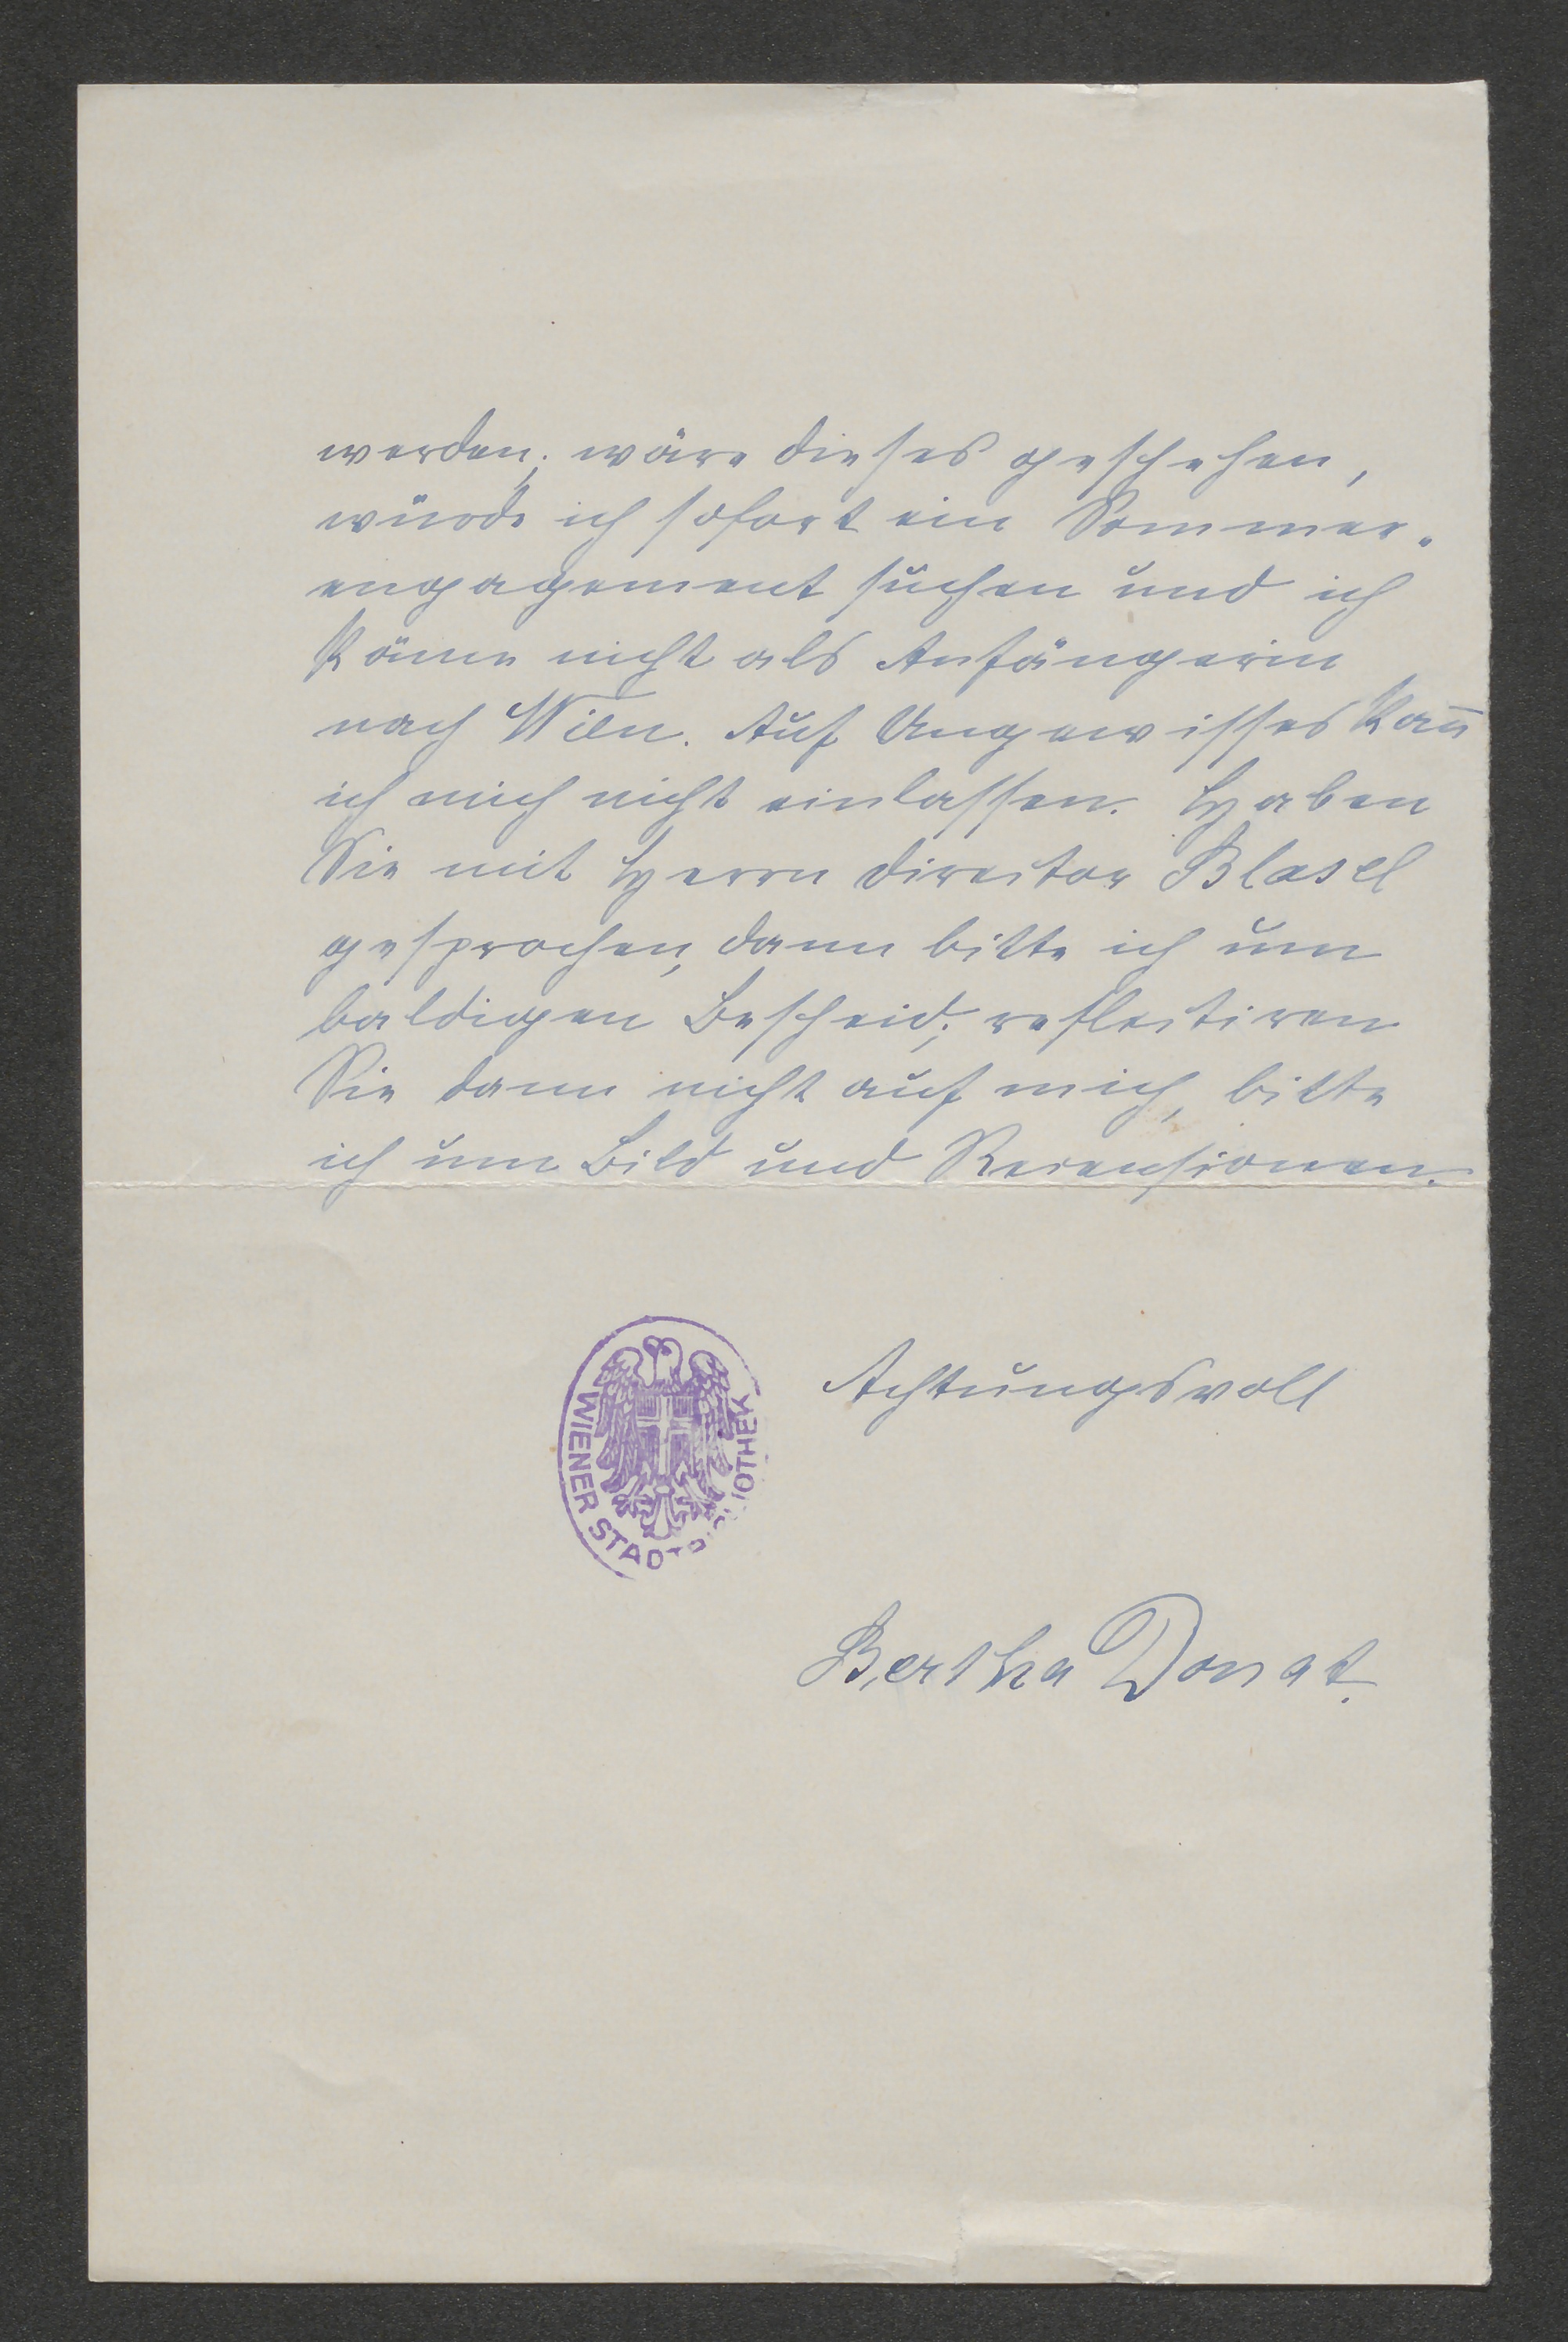 werden; wäre dieses geschehen,
würde ich sofort ein Sommer-
engagement suchen und ich
käme nicht als Anfängerin
nach Wien. Auf Ungewisses kan̅
ich mich nicht einlassen. Haben
Sie mit Herrn Director Blasel
gesprochen, dann bitte ich um
baldigen Bescheid; reflectiren
Sie dann nicht auf mich, bitte
ich um Bild und Recensionen.
Achtungsvoll
WIENER STADTBIBLIOTHEK
Bertha Donat.